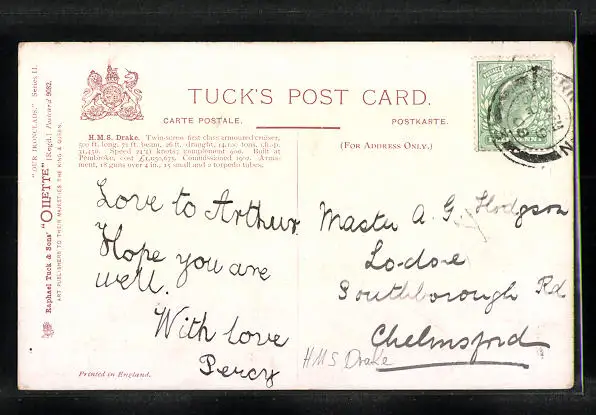 TUCK'S POST CARD.
CARTE POSTALE.
POSTKARTE.
(FOR ADDRESS ONLY.)
H.M.S. Drake. Twin-screw first class armoured cruiser,
500 ft. long, 71 ft. beam, 26 ft. draught, 14,100 tons, ch.p.
31,450. Speed knots; complement 900. Built at
Pembroke, cost Commissioned 1902. Arma-
ment, 18 guns over 4 in., 15 small and 2 torpedo tubes.
"OUR IRONCLADS." Series II.
Raphael Tuck & Sons' "OILETTE" [Regd.] Postcard 9082.
ART PUBLISHERS TO THEIR MAJESTIES THE KING & QUEEN.
Love to Arthur
Hope you are
well.
With love
Percy
Master A. G. Hodgson
Southborough Rd
Chelmsford
HMS Drake
Printed in England.